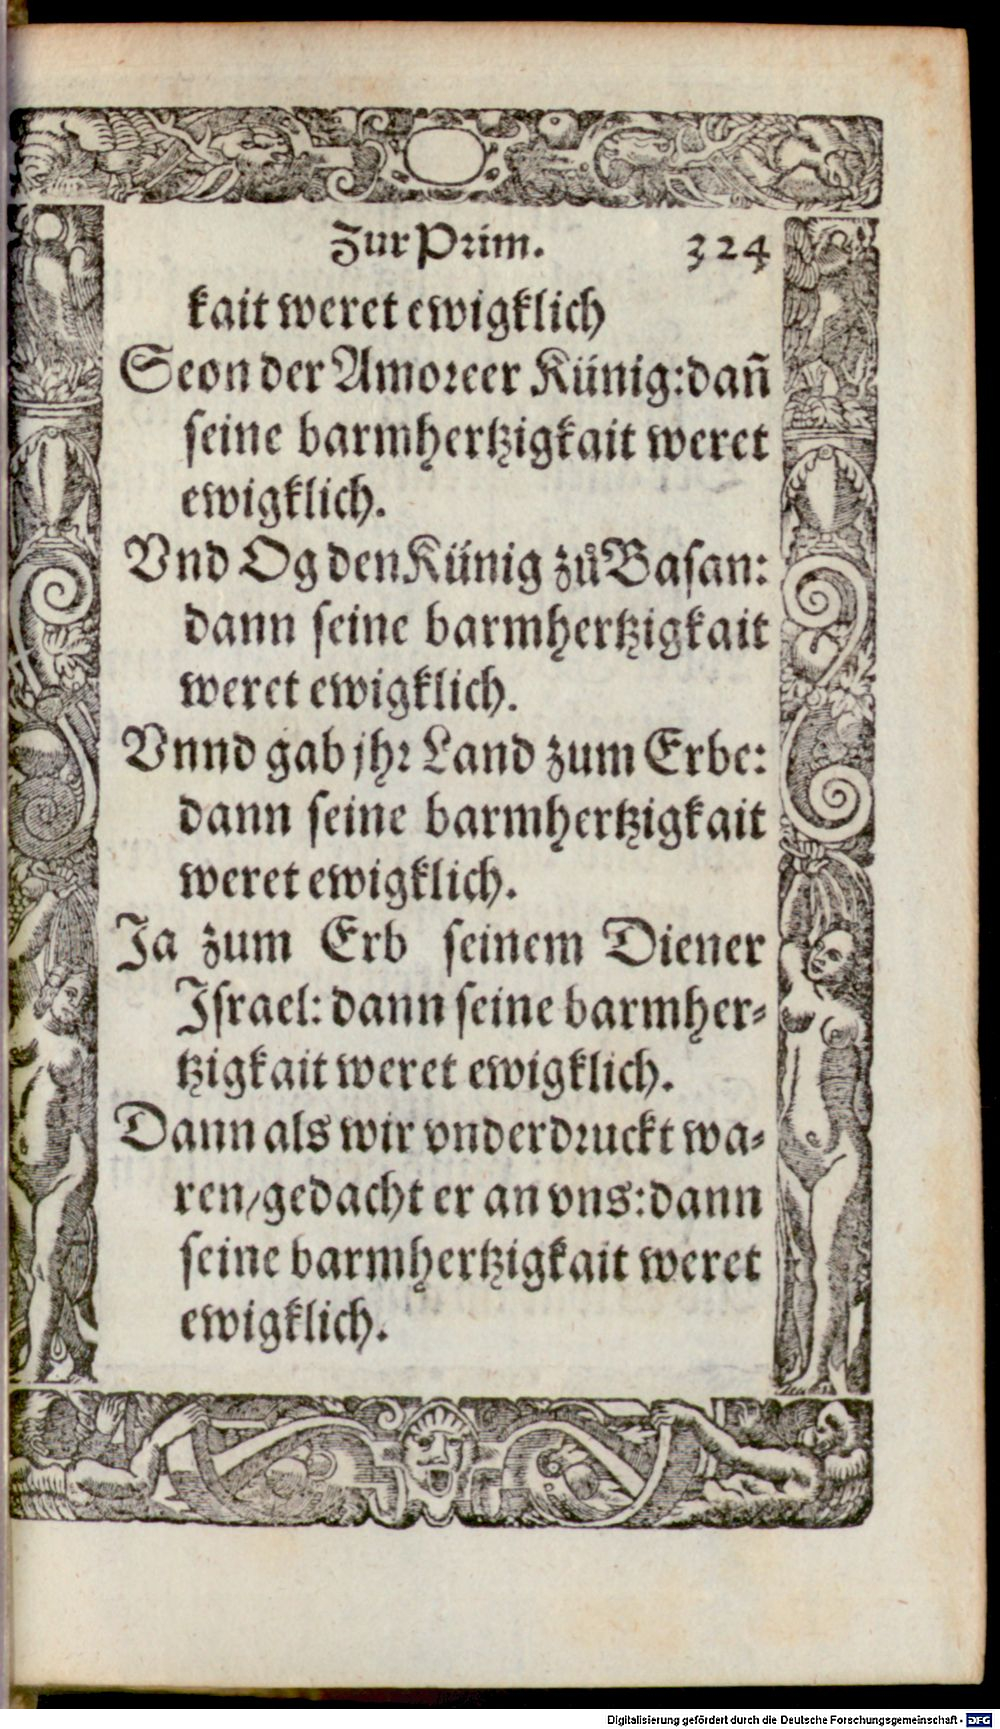 Zur Prim. 324
kait weret ewigklich
Seon der Amoreer Künig: dañ
seine barmhertzigkait weret
ewigklich.
Vnd Og den Künig zů Basan:
dann seine barmhertzigkait
weret ewigklich.
Vnnd gab jhr Land zum Erbe:
dann seine barmhertzigkait
weret ewigklich.
Ja zum Erb seinem Diener
Israel: dann seine barmher-
tzigkait weret ewigklich.
Dann als wir vnderdruckt wa-
ren/gedacht er an vns: dann
seine barmhertzigkait weret
ewigklich.
Digitalisierung gefördert durch die Deutsche Forschungsgemeinschaft - DFG